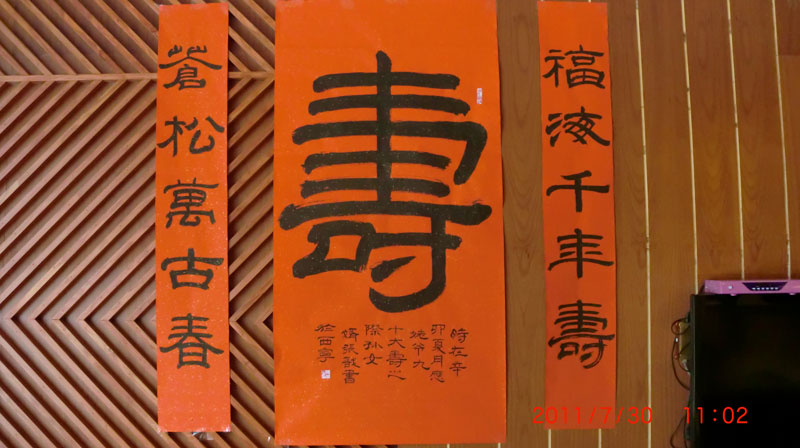 福海千年壽
壽
時在辛
卯夏月
九
十大壽之
際孙女
婿張書
於西寧
蒼松萬古春
2011/7/30 11:02